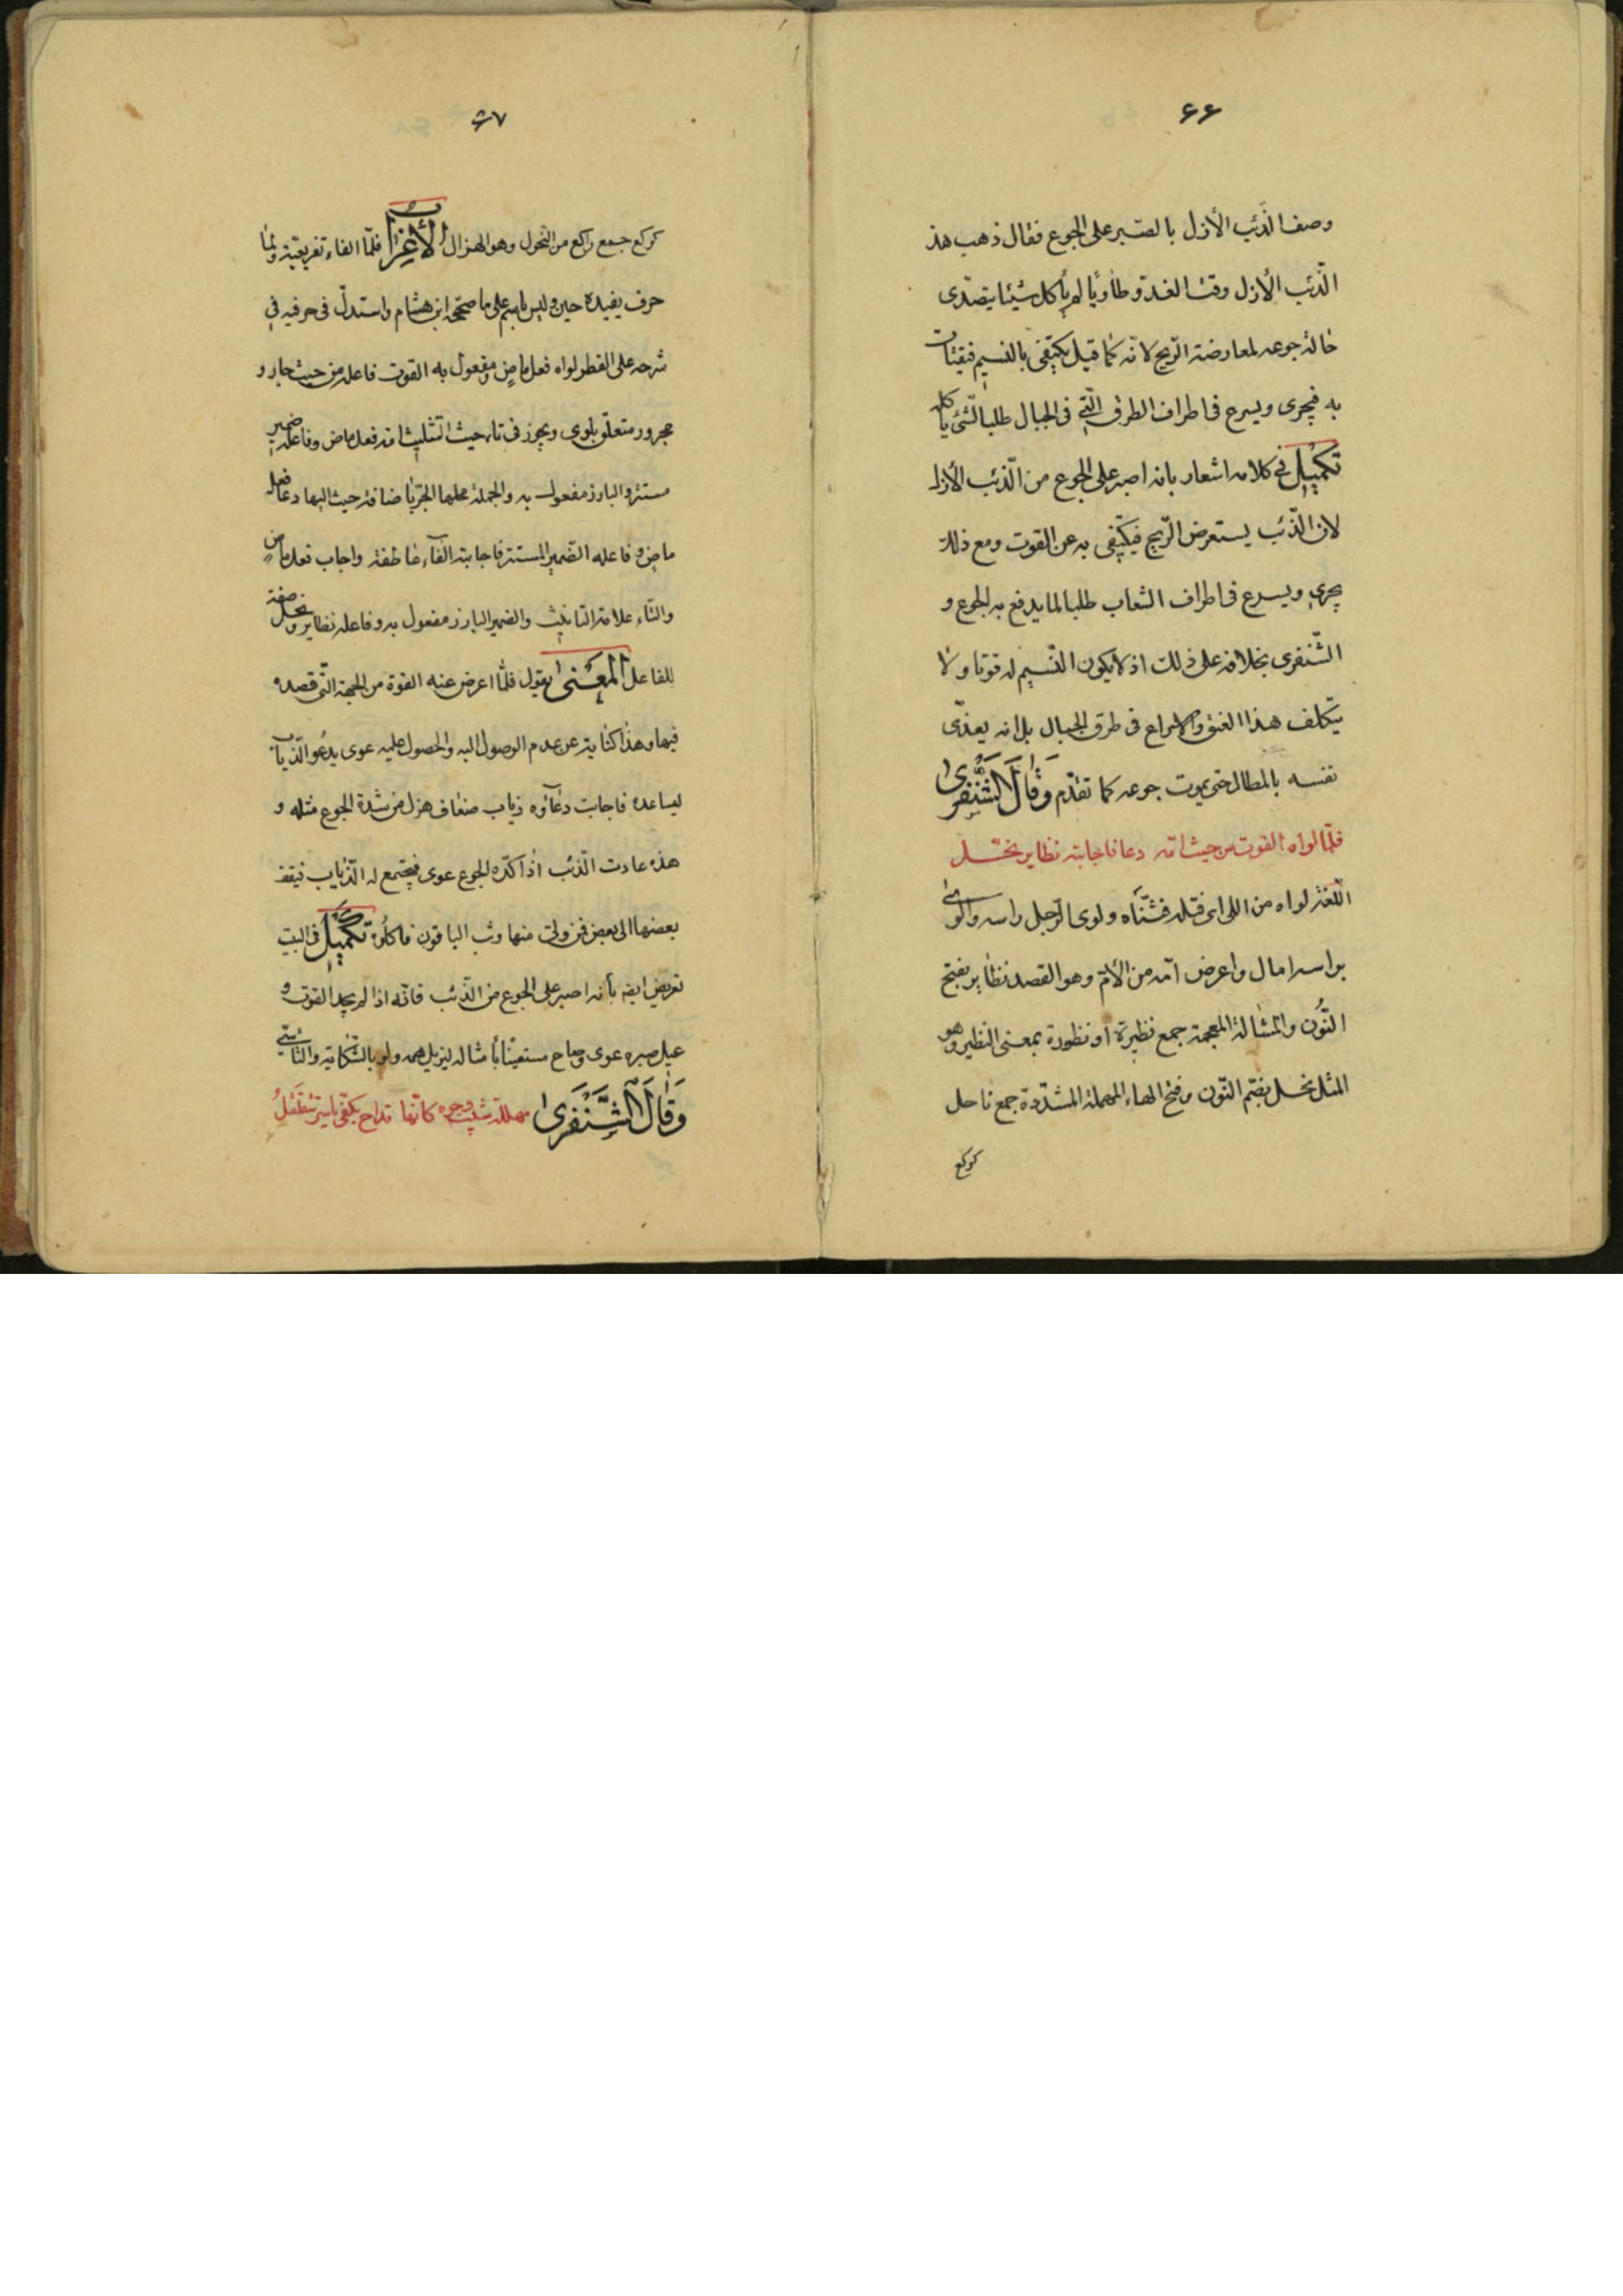 ۶۶
وصف الذّئب الأزل بالصّبر على الجوع فقال ذهب هذ
الّذئب الأزل وقت الغدوّ طاويًا لم يأكل شيئا يتصدّى
حالة جوعه لمعارضة الرّيح لانّه كما قيل يكتفى بالنسيم فيقتات
به فيجرى ويسرح فى اطراف الطرق الّتى فى الجبال طلبا لشئ يأكله
تكميل فى كلامه اشعار بانه اصبر على الجوع من الّذئب الأزل
لان الّذئب يستعرض الرّيح فيكتفى به عن القوت ومع ذلك
يجرى ويسرع فى اطراف الشعاب طلبا لما يدفع به الجوع و
الشّنفرى بخلافه على ذلك اذ لا يكون النّسيم له قوتا ولا
يتكلف هذا العنق والاسراع فى طرق الجبال بل انه يعذّى
نفسه بالمطال حتى يموت جوعه كما تقدّم وَقَالَ الشَّنْفَرى
فلمّا لواه القوت من حيث امّه دعا فاجابته نظاير نحّل
اللّغة لواه من اللى اى فتله فثنّاه ولوى الرّجل راسه والوى
براسه امال واعرض امّه من الأمّ وهو القصد نظاير بفتح
النّون والمشالة المعجمة جمع نظيرة او نظورة بمعنى النظير وهو
المثل نحّل بضمّ النّون وفتح الهاء المهملة المشدّدة جمع ناحل
كركع
۶۷
كركع جمع راكع من النحول وهو الهزال الأعراب فلمّا الفاء تفريعيّة ولمّا
حرف يفيده حين وليس باسم على ما صحّحه ابن هشام واستدلّ فى حرفيه فى
شرحه على القطر لواه فعل ماضٍ ومفعول به القوت فاعله من حيث جار و
مجرور متعلّق بلوى ويجوز فى تاء حيث التثليث امّه فعل ماض وفاعله ضمير
مستتر والبارز مفعول به والجملة محلها الجرّ باضافة حيث اليها دعا فعل
ماضٍ وفاعله الضّمير المستتر فاجابته الفاء عاطفة واجاب فعل ماض
والتاء علامة التانيث والضمير البارز مفعول به وفاعله نظاير ونحل صفة
للفاعل المَعْنى يقول فلمّا اعرض عنه القوة من الجهة الّتى قصده
فيها وهذا كناية عن عدم الوصول اليه والحصول عليه عوى يدعو الذياب
ليساعده فاجابت دعاؤه ذياب ضعاف هزل من شدة الجوع مثله و
هذه عادت الّذئب اذا كدّه الجوع عوى فيجتمع له الذّياب فيقف
بعضها الى بعض فمن ولى منها وثب الباقون فاكلوه تكميل فى البيت
تعريض ايضه بأنه اصبر على الجوع من الّذئب فانّه اذا لم يجد القوت و
عيل صبره عوى وصاح مستعينًا بأمثاله ليزيل همه ولو بالشّكاية والتأسّى
وَقَالَ الشَّنْفَرى مهللة شيب وجوه كانّها قداح بكفّى ياسر تتقلقل